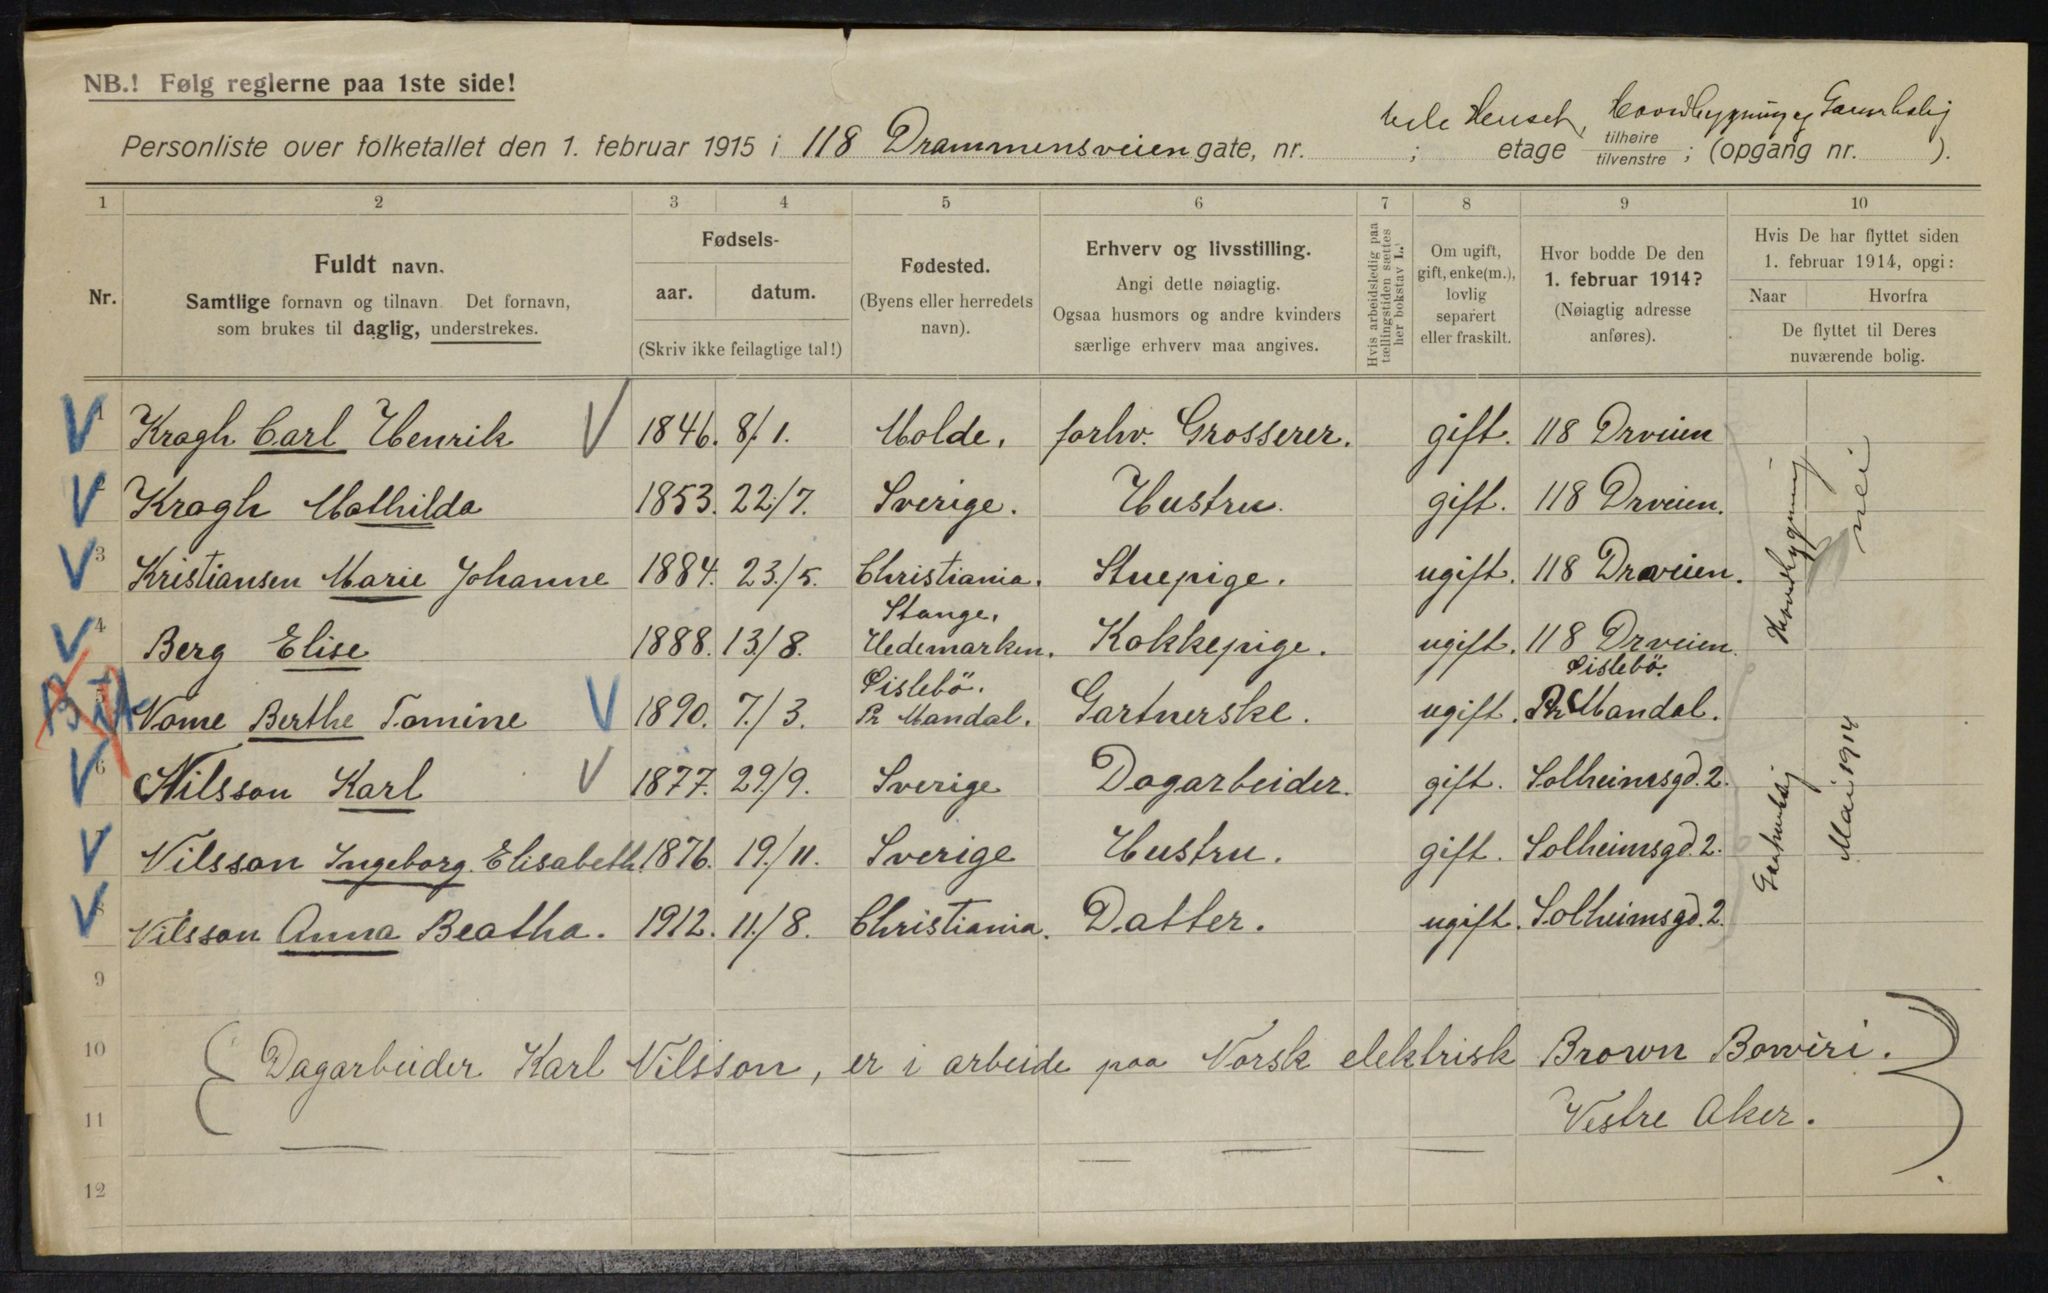 NB.! Følg reglerne paa 1ste side!
hele Huset, Hovedbygning og
Personliste over folketallet den 1. februar 1915 i 118 Drammensveien gate, nr. ; etage tilhøire tilvenstre ; (opgang nr. ).
1 2 3 4 5 6 7 8 9 10
Nr.
Fuldt navn.
Samtlige fornavn og tilnavn. Det fornavn,
som brukes til daglig, understrekes.
Fødsels-
aar. datum.
(Skriv ikke feilagtige tal!)
Fødested.
(Byens eller herredets
navn).
Erhverv og livsstilling.
Angi dette nøiagtig.
Ogsaa husmors og andre kvinders
særlige erhverv maa angives.
Hvis arbeidsledig paa
tællingstiden sættes
her bokstav L.
Om ugift,
gift, enke(m.),
lovlig
separert
eller fraskilt.
Hvor bodde De den
1. februar 1914?
(Nøiagtig adresse
anføres).
Hvis De har flyttet siden
1. februar 1914, opgi:
Naar Hvorfra
De flyttet til Deres
nuværende bolig.
1 Kragh Carl Henrik V 1846. 8/1. Molde. forhv. Grosserer. gift. 118 Drveien
2 Kragh Mathilda 1853. 22/7. Sverige. Hustru. gift. 118 Drveien.
3 Kristiansen Marie Johanne 1884. 23./5. Christiania. Stuepige. ugift. 118 Drveien.
Stange,
4 Berg Elise 1888. 13/8. Hedemarken. Kokkepige. ugift. 118 Drveien.
Öislebö. Öislebö.
5 Vome Berthe Tomine V 1890. 7./3. Pr Mandal. Gartnerske. ugift. Pr Mandal.
6 Nilsson Karl V 1877. 29./9. Sverige Dagarbeider. gift. Solheimsgd. 2.
7 Nilsson Ingeborg Elisabeth. 1876. 19./11. Sverige Hustru. gift. Solheimsgd. 2.
8 Nilsson Anna Beatha. 1912. 11./8. Christiania. Datter. ugift. Solheimsgd. 2.
Hovedbygning
nei
Mai 1914
9
10 Dagarbeider Karl Nilsson, er i arbeide paa Norsk elektrisk Brown Bowiri.
11 Vestre Aker.
12